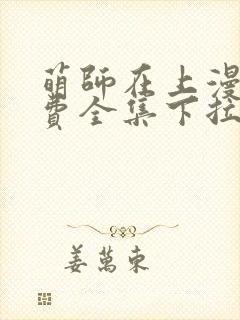 萌師在上漫
費全集下拉
姜萬東